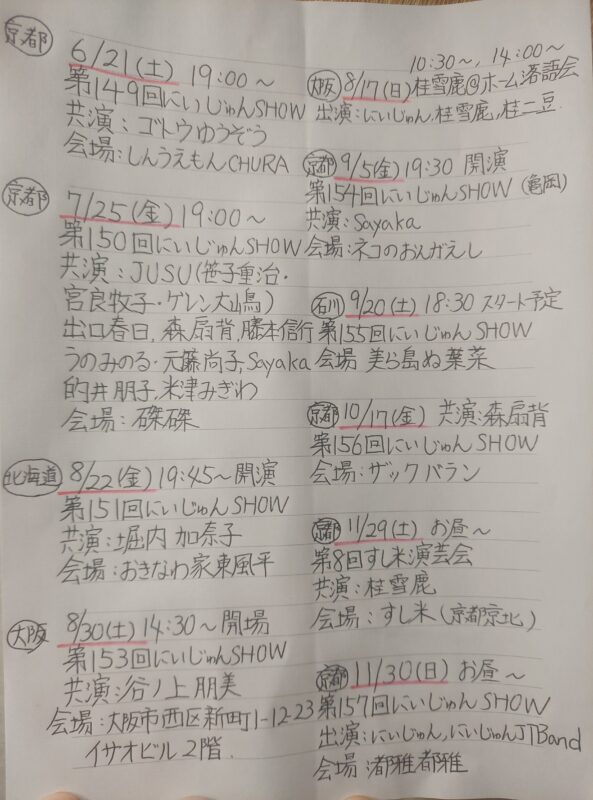 京都
6/21(土) 19:00〜
第149回にいじゅんSHOW
共演:ゴトウゆうぞう
会場:しんうえもんCHURA
京都
7/25(金) 19:00〜
第150回にいじゅんSHOW
共演:JUSU(笹子重治・
宮良牧子・ゲレン大嶋)
出口春日,森扇背,藤本信行
うのみのる・元藤尚子,Sayaka
的井朋子,米津みぎわ
会場:磔磔
北海道
8/22(金) 19:45〜開演
第151回にいじゅんSHOW
共演:堀内加奈子
会場:おきなわ家東風平
大阪
8/30(土) 14:30〜開場
第153回にいじゅんSHOW
共演:谷ノ上朋美
会場:大阪市西区新町1-12-23
イサオビル2階.
10:30〜, 14:00〜
大阪 8/17(日) 桂雪鹿@ホーム落語会
出演:にいじゅん,桂雪鹿,桂二豆.
京都 9/5(金) 19:30 開演
第154回にいじゅんSHOW (亀岡)
共演:Sayaka
会場:ネコのおんがえし
石川 9/20(土) 18:30 スタート予定
第155回にいじゅんSHOW
会場 美ら島ぬ葉菜
京都 10/17(金) 共演:森扇背
第156回にいじゅんSHOW
会場:ザックバラン
京都 11/29(土) お昼〜
第8回すし米演芸会
共演:桂雪鹿
会場:すし米(京都京北)
京都 11/30(日) お昼〜
第157回にいじゅんSHOW
出演:にいじゅん,にいじゅんJTBand
会場:都雅都雅